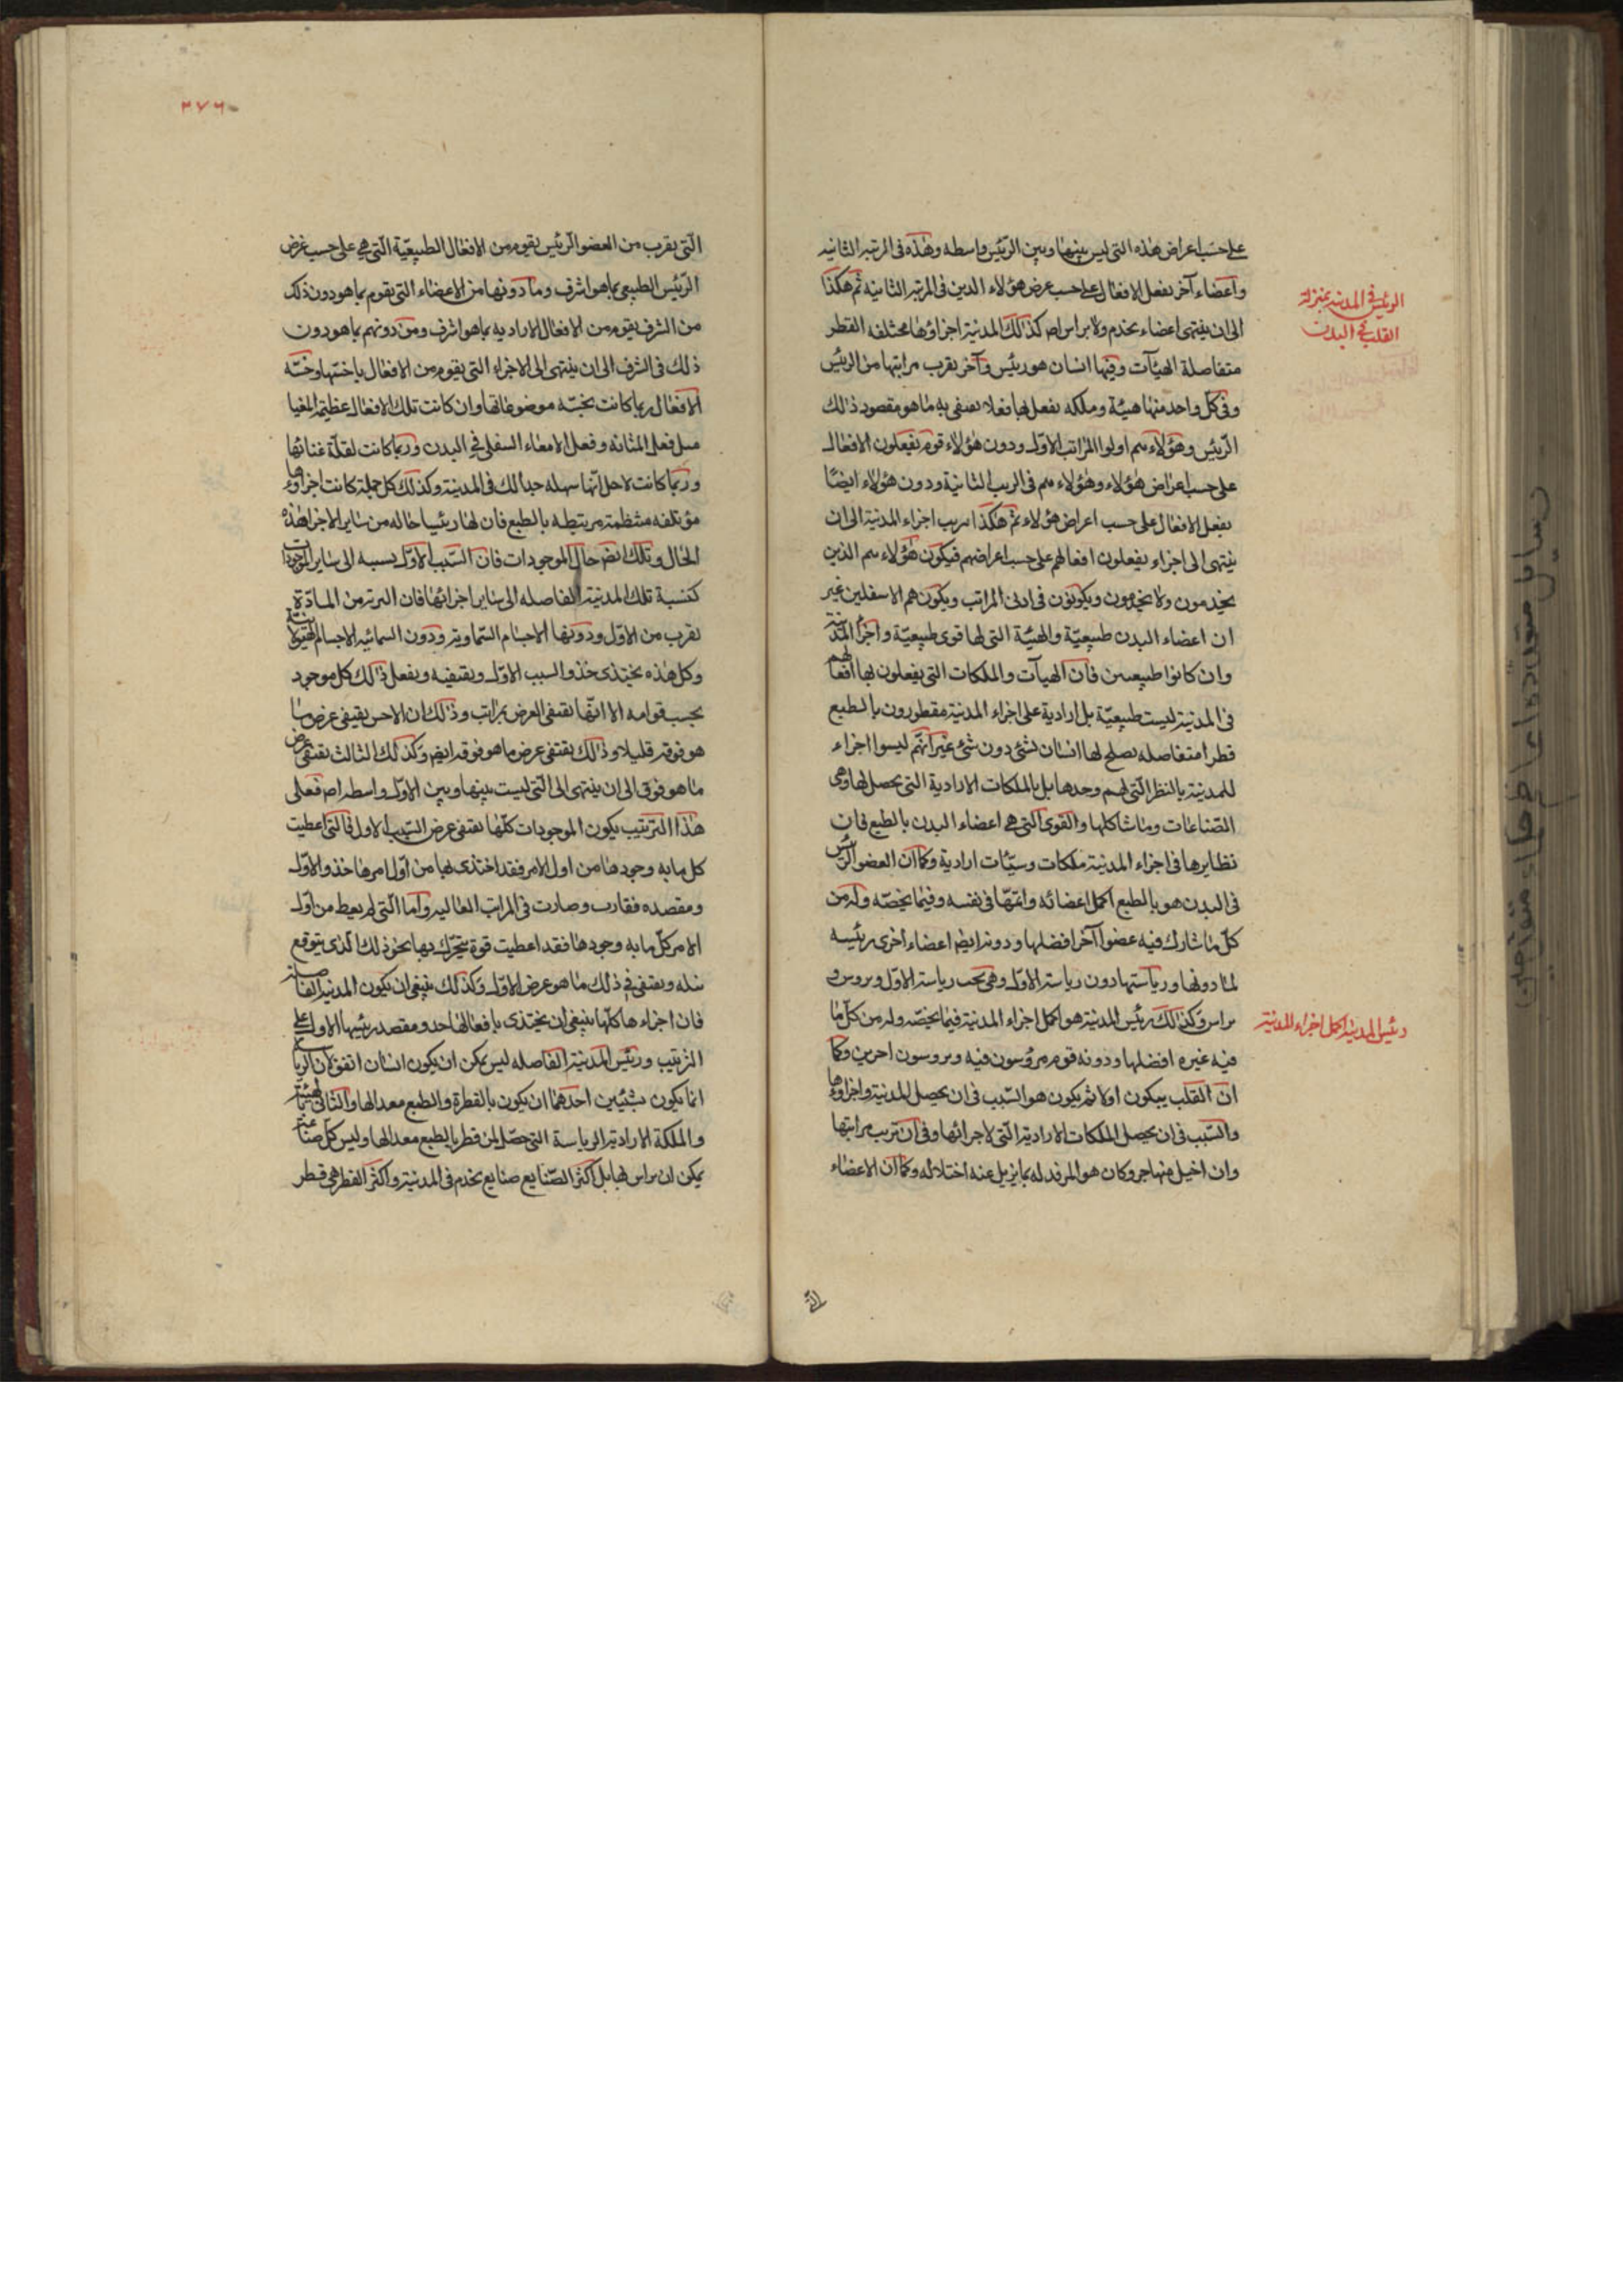 على حسب اغراض هذه التى ليس بينها وبين الرئيس واسطه وهذه فى الرتبه الثانيه
واعضاء آخر يفعل الافعال على حسب غرض هؤلاء الذين فى المرتبه الثانيه ثم هكذا
الى ان ينتهى اعضاء يخدم ولا براس اصلا كذلك المدنية اجزاؤها مختلفه الفطر
متفاضلة الهيآت وفيها انسان هو رئيس وآخر يقرب مراتبها من الرئيس
وفى كل واحد منها هيئة وملكه يفعل بها فعلا يقتفى به ما هو مقصود ذلك
الرئيس وهؤلاء هم اولوا المراتب الاول ودون هؤلاء قوم يفعلون الافعال
على حسب اغراض هؤلاء وهؤلاء هم فى الرتب الثانية ودون هؤلاء ايضا
يفعل الافعال على حسب اغراض هؤلاء ثم هكذا ترتب اجزاء المدنية الى ان
ينتهى الى اجزاء يفعلون افعالهم على حسب اغراضهم فيكون هؤلاء هم الذين
يخدمون ولا يخدمون ويكونون فى ادنى المراتب ويكون هم الاسفلين غير
ان اعضاء البدن طبيعيّة والهيئة التى لها قوى طبيعيّة واجزأ المدنية
وان كانوا طبيعيين فان الهيآت والملكات التى يفعلون بها افعالهم
فى المدنية ليست طبيعيّة بل ارادية على اجزاء المدنية مفطورون بالطبع
فطرا متفاضله يصلح لها انسان لشئ دون شئ غير انهم ليسوا اجزاء
للمدنية بالنظر التى لهم وحدها بل بالملكات الارادية التى يحصل لها وهى
الصناعات وما شاكلها والقوى التى هى اعضاء البدن بالطبع فان
نظايرها فى اجزاء المدنية ملكات وسيّئات ارادية وكما ان العضو الرئيس
فى البدن هو بالطبع اكمل اعضائه واتمها فى نفسه وفيما يخصه وله من
كل ما شارك فيه عضوا آخر افضلها ودونه ايضا اعضاء اخرى رئيسه
لما دونها ورياستها دون رياسته الاول وهى تحت رياسة الاول ويروس و
براس وكذلك رئيس المدنية هو اكمل اجزاء المدنية فيما يخصه وله من كل ما
فيه غيره افضلها ودونه قوم مرؤسون فيه ويروسون اخرين وكما
ان القلب يتكون اولا ثم يكون هو السبب فى ان يحصل المدنية واجزاؤها
والسبب فى ان يحصل الملكات الارادية التى لاجزائها وفى ان ترتب مراتبها
وان اختل منها جزو كان هو المرفد له بما يزيل عنه اختلاله وكما ان الاعضاء
الرئيس فى المدنيه بمنزلة
القلب فى البدن
رئيس المدينة اكمل اجزاء المدنية
٢٧٦
التى يقرب من العضو الرئيس يقوم من الافعال الطبيعيّة التى هى على حسب غرض
الرئيس الطبيعى بما هو اشرف وما دونها من الاعضاء التى يقوم بما هو دون ذلك
من الشرف يقوم من الافعال الاراديه بما هو اشرف ومن دونهم بما هو دون
ذلك فى الشرف الى ان ينتهى الى الاجزاء التى يقوم من الافعال باخسّها وخسّه
الافعال ربما كانت بخسّه موضوعاتها وان كانت تلك الافعال عظيمة
مثل فعل المثانه وفعل الامعاء السفلى فى البدن وربما كانت لقلة غنائها
وربما كانت لاجل انها سهله جدا لك فى المدينة وكذلك كل جملة كانت اجزاؤها
مؤتلفه منتظمة مرتبطه بالطبع فان لها رئيسا حاله من ساير الاجزا هذه
الحال وتلك ايضا حال الموجودات فان السبب الاول نسبه الى ساير الموجودات
كنسبة تلك المدنية الفاضله الى ساير اجزائها فان البرية من المادة
تقرب من الاول ودونها الاجسام السماوية ودون السمائيه الاجسام الهيولانية
وكل هذه يحتذى حذو السبب الاول ويقتفيه ويفعل ذلك كل موجود
بحسب قوامه الا انها تقتفى الغرض بمراتب وذلك ان الاخس يقتفى غرض ما
هو فوقه قليلا وذلك يقتفى غرض ما هو فوقه ايضا وكذلك الثالث يقتفى غرض
ما هو فوق الى ان ينتهى الى التى ليست بينها وبين الاول واسطه اصلا فعلى
هذا الترتيب يكون الموجودات كلها تقتفى غرض السبب الاول فالتى اعطيت
كل ما به وجودها من اول الامر فقد احتذى بها من اول امرها حذو الاول
ومقصده فقارب وصارت فى المراتب العاليه واما التى لم يعط من اول
الامر كل ما به وجودها فقد اعطيت قوة يتحرك بها نحو ذلك الذى يتوقع
نيله ويقتفى فى ذلك ما هو غرض الاول وكذلك ينبغى ان يكون المدنية الفاضلة
فان اجزاءها كلها ينبغى ان يحتذى بافعالها حذو مقصد رئيسها الاول على
الترتيب ورئيس المدنية الفاضله ليس يمكن ان يكون انسان اتفق لان الرياسة
انما يكون بشيئين احدهما ان يكون بالفطرة والطبع معدا لها والثانى بالهيئة
والملكة الارادية الرياسة التى حصل لمن فطر بالطبع معدا لها وليس كل صناعة
يمكن ان يراس بها بل اكثر الصنايع صنايع يخدم فى المدنية واكثر الفطر هى فطر
رسايل متعددة از حكماء متواخرين